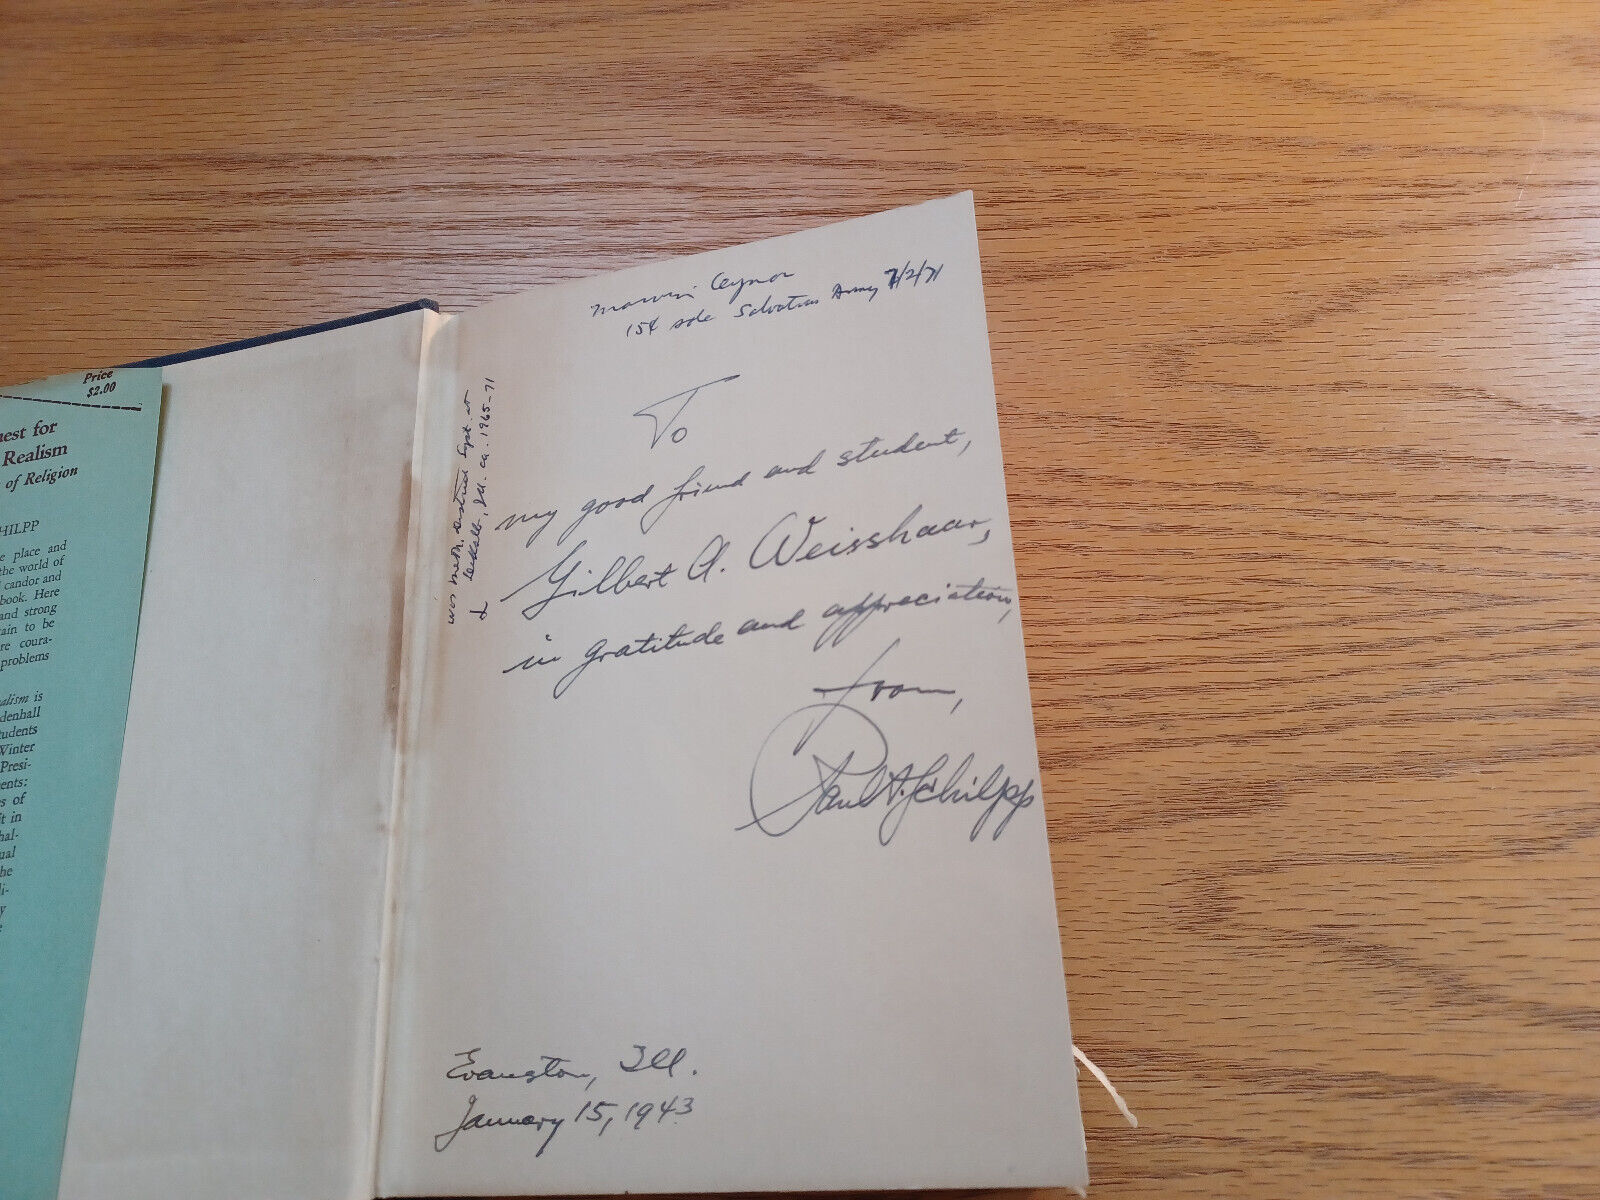 Price
$2.00
uest for
Realism
of Religion
HILPP
e place and
the world of
candor and
book. Here
and strong
ain to be
re coura-
problems
alism is
denhall
tudents
Winter
Presi-
ents:
s of
t in
hal-
ual
he
li-
y
e
Marvin Ceynor
15¢ sale Salvation Army 7/2/71
was Meth. District Supt. at
DeKalb, Ill. ca. 1965-71
To
my good friend and student,
Gilbert A. Weisshaar,
in gratitude and appreciation,
from,
Paul A. Schilpp
Evanston, Ill.
January 15, 1943